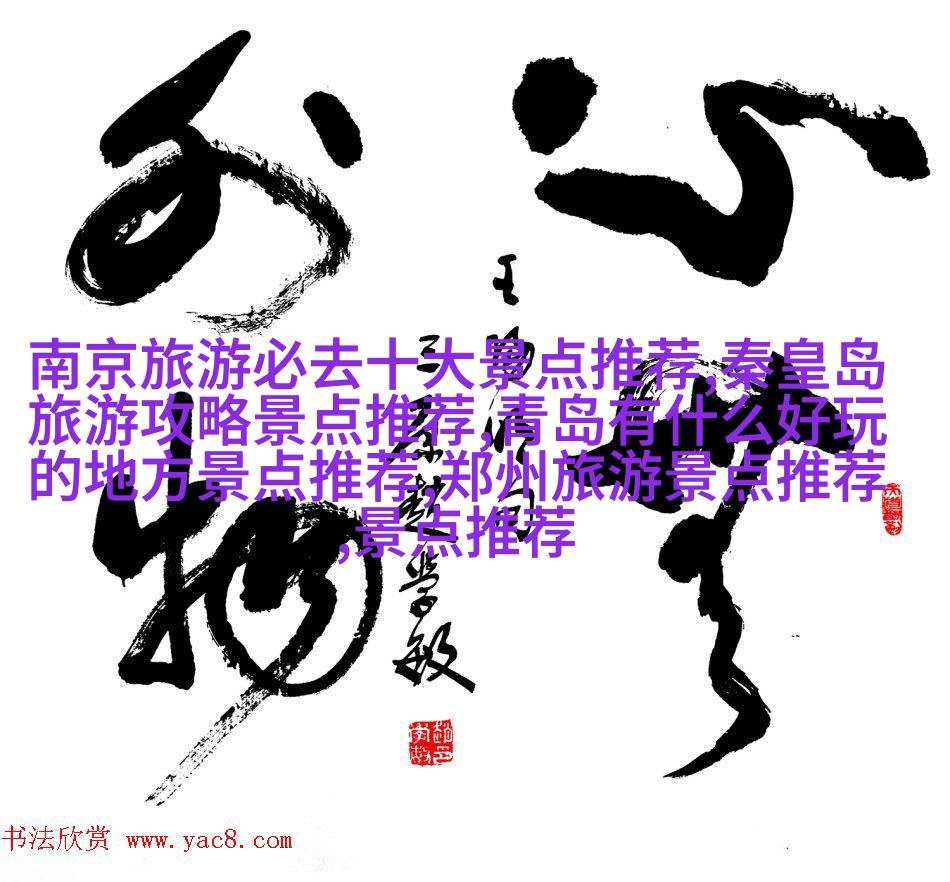 心無
外物
南京旅游必去十大景点推荐,秦皇岛
旅游攻略景点推荐,青岛有什么好玩
的地方景点推荐,郑州旅游景点推荐
,景点推荐
书法欣赏 www.yac8.com